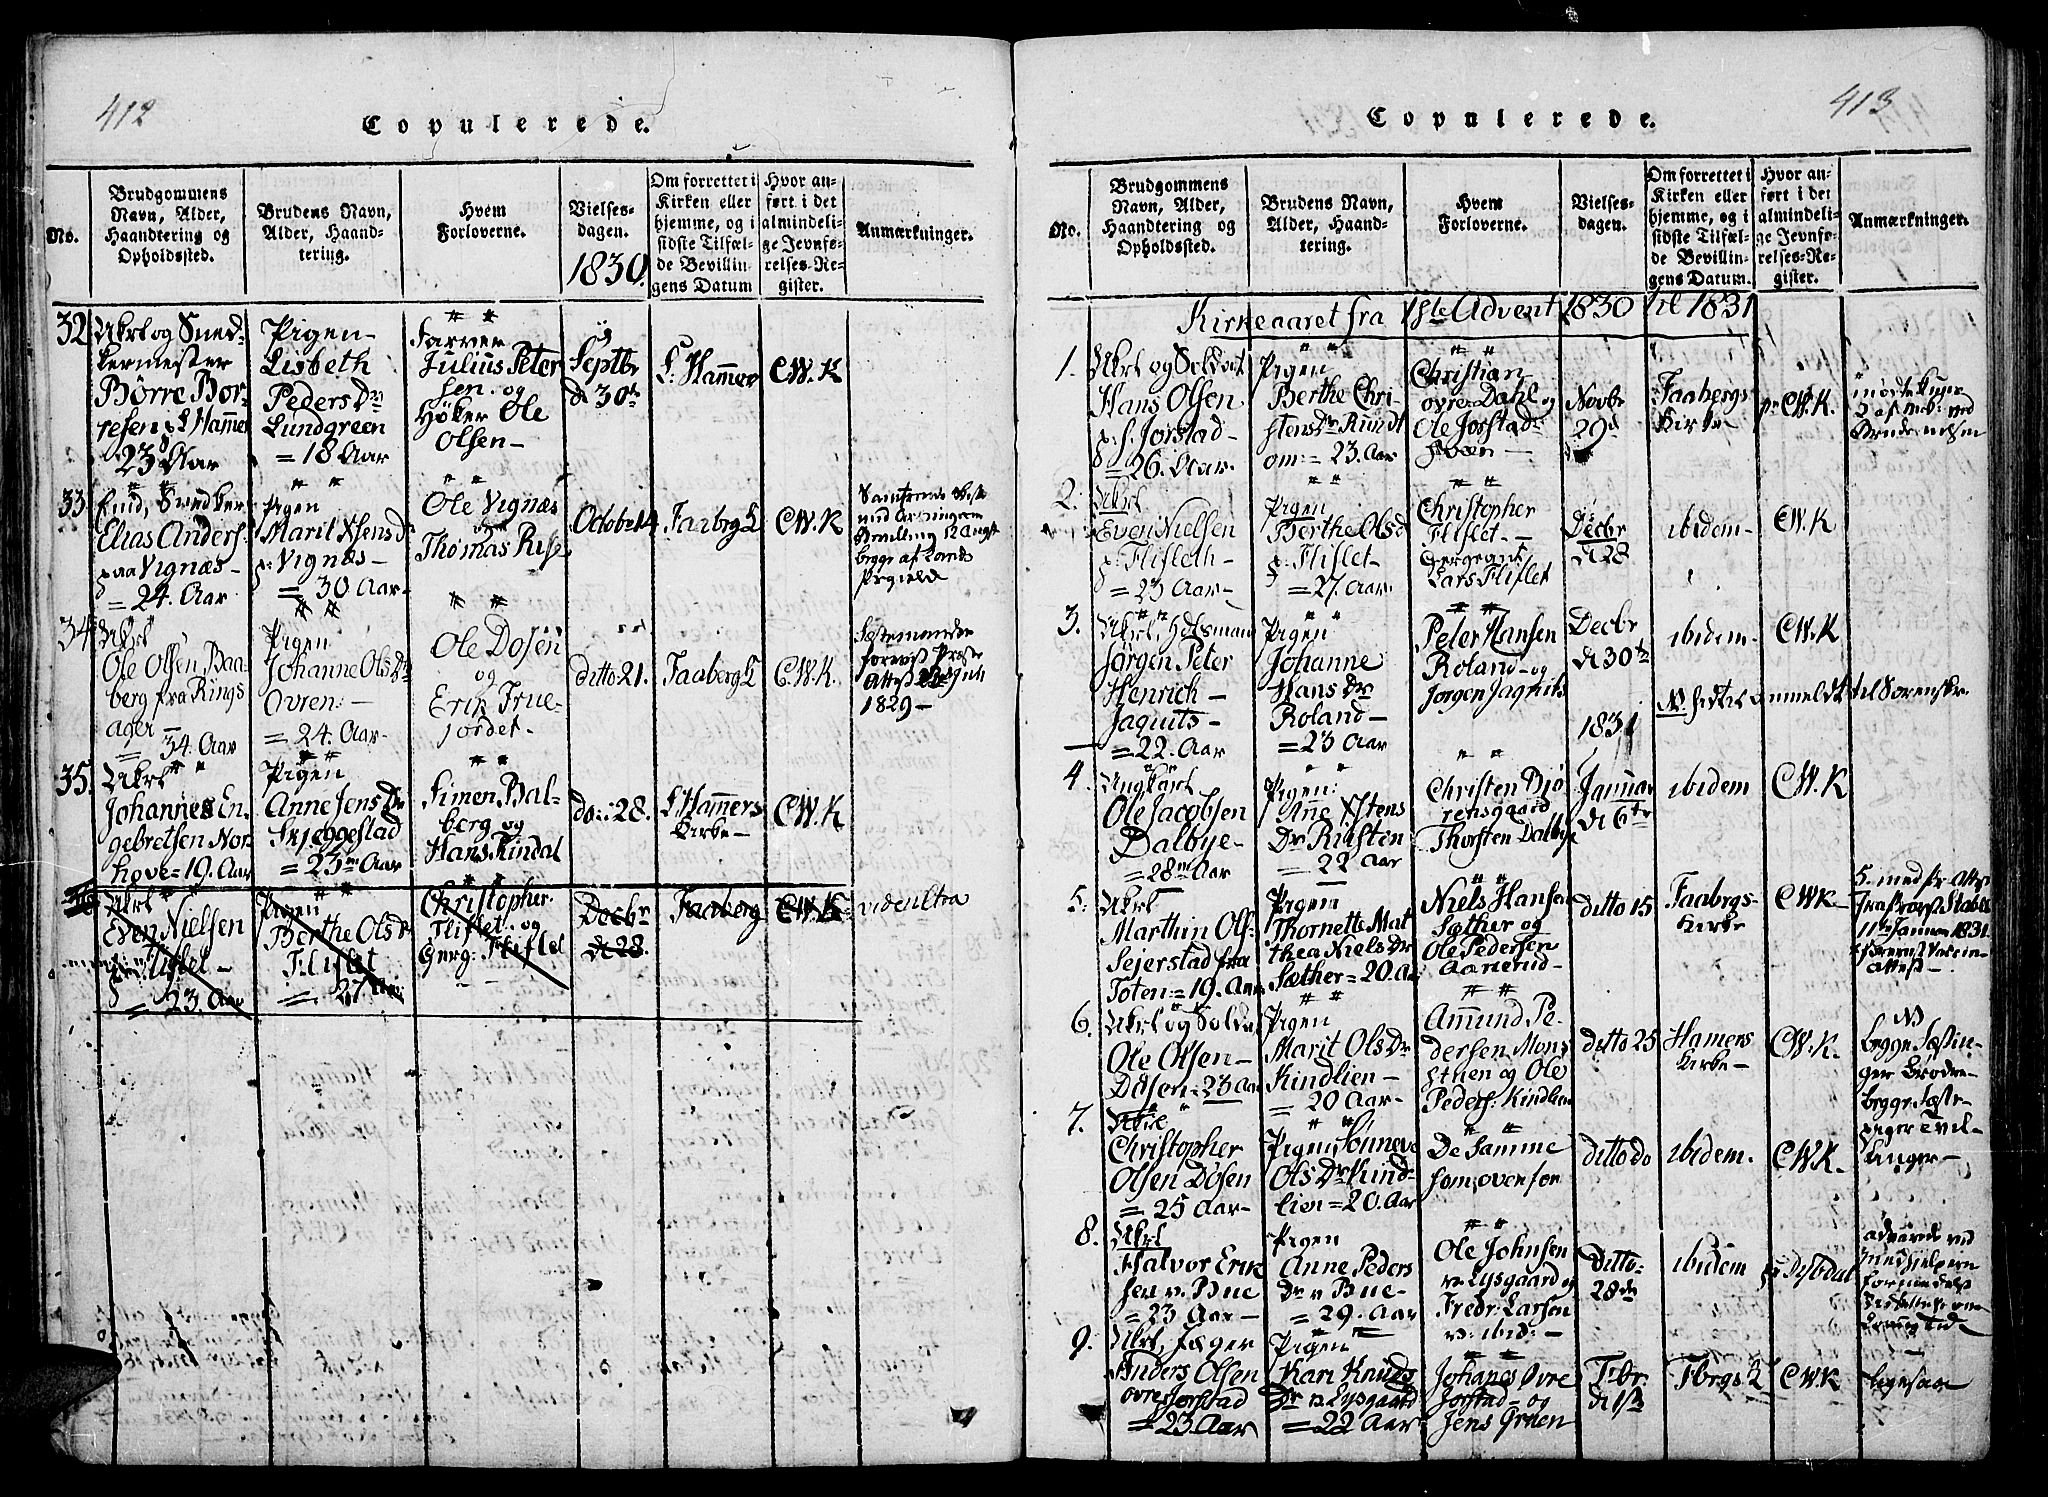 412
Copulerede.
No.
Brudgommens
Navn, Alder,
Haandtering og
Opholdssted.
Brudens Navn,
Alder, Haand-
tering.
Hvem
Forloverne.
Vielses-
dagen.
1830.
Om forrettet i
Kirken eller
hjemme, og i
sidste Tilfæl-
de Bevillin-
gens Datum
Hvor an-
ført i det
almindeli-
ge Jevnfø-
relses-Re-
gister.
Anmærkninger.
32
Ukrl og Sned-
kermester
Børre Bør-
resen L Hammer
23 Aar
Pigen
Lisbeth
Peders Dr
Lundgreen
= 18 Aar
Farver
Julius Peter
sen og
Høker Ole
Olsen-
Septbr
d 30te
L: Hamer
CWK
33
Enid, Snedker
Elias Anders.
paa Vignæs-
= 24. Aar
Pigen
Marit Xsens D
p: Vignæs-
= 30 Aar-
Ole Vignæs
og
Thomas Rise
Octobr 14
Faabrg K
CWK
Bevilling 12 Aug
begge af Lands
Prgield
34
Ukrl
Ole Olsen Baa-
berg fra Rings
ager-
= 34. Aar
Pigen
Johanne Ols Dr
Ovren:-
= 24. Aar-
Ole Dosen
og
Erik True-
jordet-
ditto 21.
Faaberg K
C.W.K.
Festemanden
foreviist Præste
Attest
1829-
35.
Ukrl
Johannes En
gebretsen Nor-
hove = 19. Aar
Pigen
Anne Jens Dr
Skjeggestad
= 23 Aar
Simen Bal-
berg og
Hans Kindal
do: 28.
L. Hamers
Kirke-
CWK
Ukrl
Even Nielsen
Flislet-
= 23. Aar
Pigen
Berthe Ols Dr
Flislet
= 27 Aar
Christopher
Flislet og
Serg: Flislet
Decbr
d 28
Faaberg
CWK
vide ultra
413
Copulerede.
No.
Brudgommens
Navn, Alder,
Haandtering og
Opholdssted.
Brudens Navn,
Alder, Haand-
tering.
Hvem
Forloverne.
Vielses-
dagen.
Om forrettet i
Kirken eller
hjemme, og i
sidste Tilfæl-
de Bevillin-
gens Datum.
Hvor an-
ført i det
almindeli-
ge Jevnfø-
relses-Re-
gister.
Anmærkninger.
Kirkeaaret fra 1ste Advent 1830 til 1831
1.
Ukrl og Soldat
Hans Olsen
p: S. Jørstad-
= 26. Aar.
Pigen
Berthe Chri-
stens Dr Rundt
om:- 23. Aar
Christian
øvre Dahl og
Ole Jørstad
Svæn-
Novbr
29d
Faabergs
Kirke
CW.K.
2.
Ukrl
Even Nielsen
p: Flisleth-
= 23 Aar-
Pigen
Berthe Olsd
p: Flislet-
= 27. Aar.
Christopher
Flislet-
Sergeant
Lars Flislet
Decbr
d 28
ibidem-
CW.K
3.
Ukrl, Huusman
Jørgen Peter
Henrich-
Jaquits-
= 22. Aar
Pigen
Johanne
Hans Dr
Roland-
= 23 Aar
Peter Hansen
Roland- og
Jørgen Jaquits
Decbr
d 30te
ibidem-
CW.K
1831
4.
Ungkarl
Ole Jacobsen
Dalbye-
= 28 Aar
Pigen:
Ane Xstens
Dr Rusten
= 22 Aar
Christen Bjø
rensgaard
Thorsten Dalbye
Januar
d 6te
ibidem
CW.K
5:
Ukrl
Marthin Ols.
Sejerstad fra
Toten = 19. Aar
Pigen
Thornette Mat
thea Niels Dr
Sæther = 20. Aar
Niels Hansen
Sæther og
Ole Pedersen
Aanerud-
ditto 15
Faabrgs-
Kirke
CWK
11te Januar 1831.
Attest-
6.
Ukrl og Solda
Ole Olsen-
Døsen = 23 Aar
Pigen
Marit Ols Dr
Kindlien-
= 20 Aar-
Amund Pe-
dersen Mons
stuen og Ole
Peders: Kindlien
ditto 25
Hamers
Kirke-
CW.K.
N
begge
ger Brødre-
begge
piger Tvil-
linger-
7.
Ukrl
Christopher
Olsen Døsen
= 25 Aar-
Pigen, Sønneve
Ols Dr Kind-
lien = 20. Aar
De Samme
som ovenfor
ditto do
ibidem.
CW.K.
8.
Ukrl
Halvor Erik
sen v. Bue
= 23 Aar-
Pigen
Anne Peders
Dr v Bue-
= 29. Aar
Ole Johnsen
v. Lysgaard og
Fredr: Larsen
v: ibid:-
Ditto
28de
ibidem
9.
Ukrl, Jæger
Anders Olsen
øvre Jørstad
= 23 Aar
Pigen
Kari Knuds
Dr v Lysgaard
= 22 Aar
Johanes Øvre
Jørstad- og
Jens Gruen
Fbr.
CWK